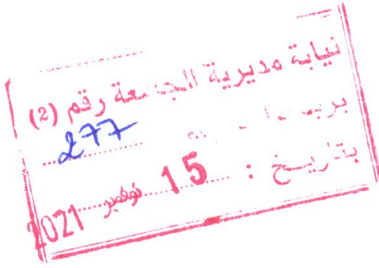 نيابة مديرية الجامعة رقم (2)
277
بتاريخ : 15 نوفمبر 2021